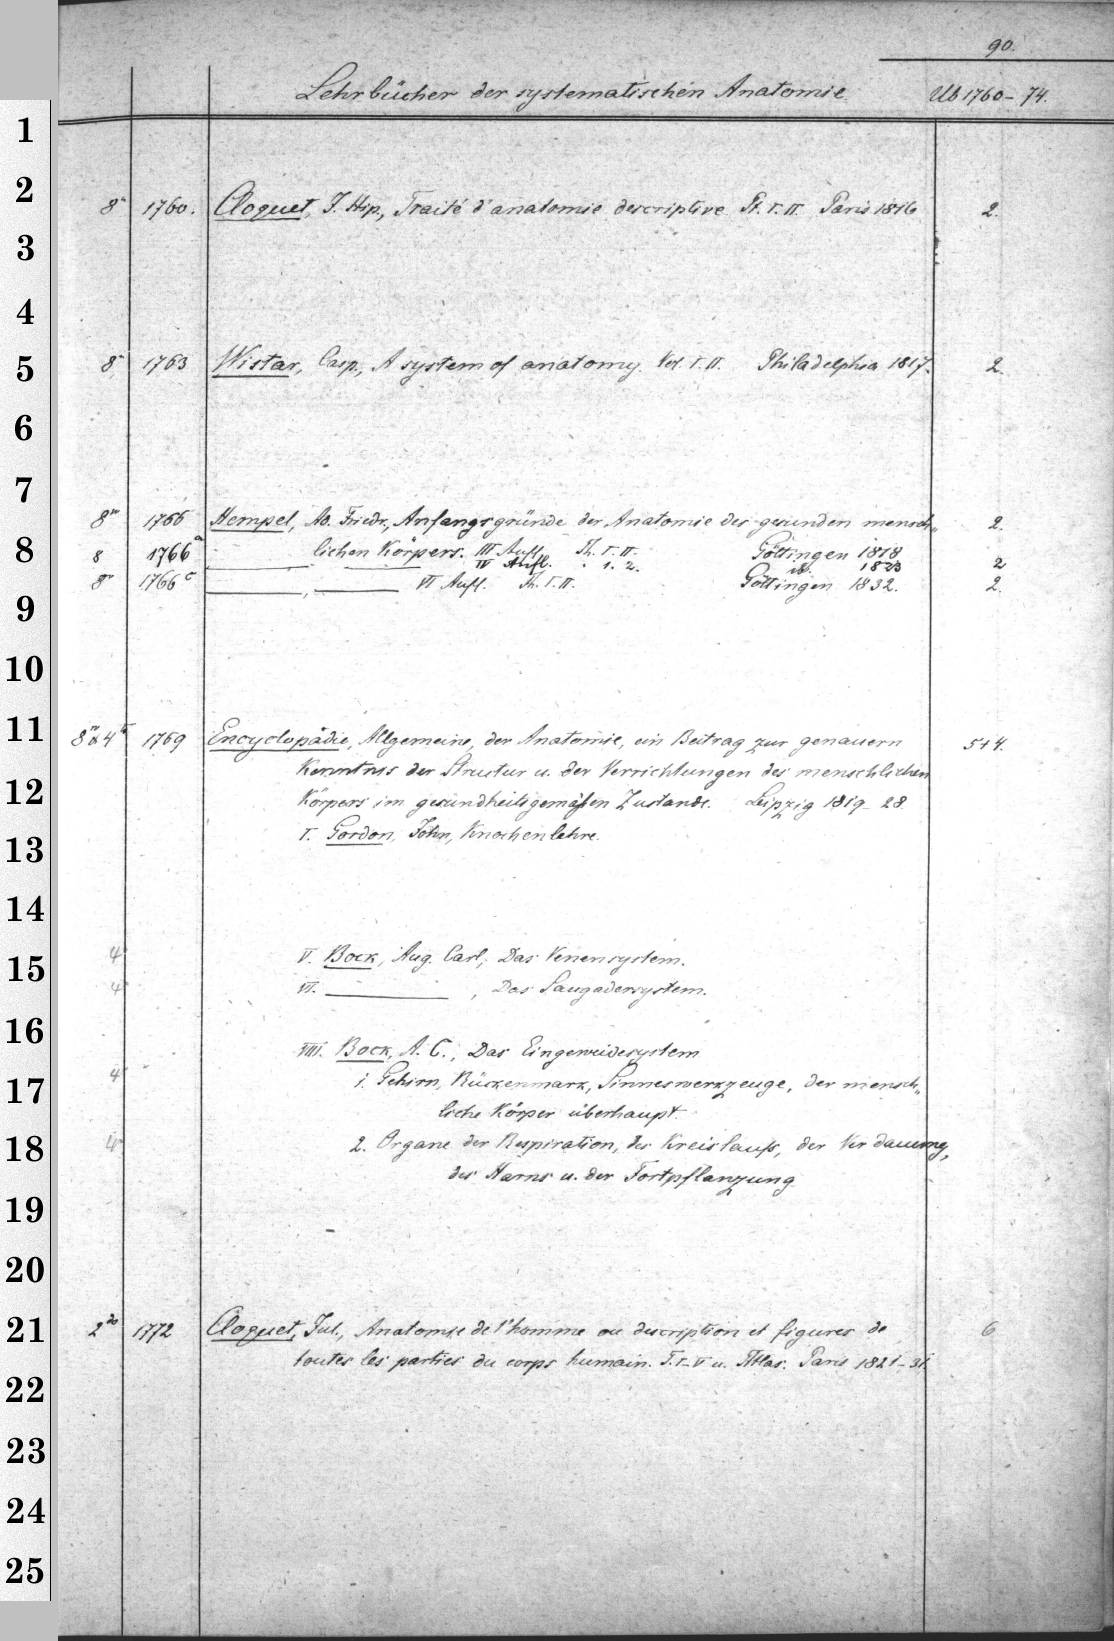 90.
Lehrbücher der systematischen Anatomie. Ub 1760-74.
1
2
8° 1760. Cloquet, J. Hip., Traité d'anatomie descriptive Pt. I. II. Paris 1816 2.
3
4
5
8° 1763 Wistar, Casp., A system of anatomy. Vol. I. II. Philadelphia 1817. 2.
6
7
8m 1766 Hempel, Ad. Friedr., Anfangsgründe der Anatomie des gesunden mensch- 2.
8
8 1766a lichen Körpers. III Aufl. Th. I. II. Göttingen 1818
IV Aufl. 1. 2. ib. 1823 2
8m 1766c VI Aufl. Th. I. II. Göttingen 1832. 2.
9
10
11
8m & 4to 1769 Encyclopädie, Allgemeine, der Anatomie, ein Beitrag zur genauern 5+4.
Kenntnis der Structur u. der Verrichtungen des menschlichen
12
Körpers im gesundheitsgemäßen Zustande. Leipzig 1819-28.
I. Gordon, John, Knochenlehre.
13
14
4° V. Bock, Aug. Carl, Das Venensystem.
15
4° VII. , Das Saugadersystem.
16
VIII. Bock, A. C., Das Eingeweidesystem
4° 1. Gehirn, Rückenmark, Sinneswerkzeuge, der mensch-
17
liche Körper überhaupt.
4° 2. Organe der Respiration, des Kreislaufs, der Verdauung,
18
des Harns u. der Fortpflanzung.
19
20
21
2do 1772 Cloquet, Jul., Anatomie de l'homme ou description et figures de 6
toutes les parties du corps humain. T. I-V u. Atlas. Paris 1821-31.
22
23
24
25